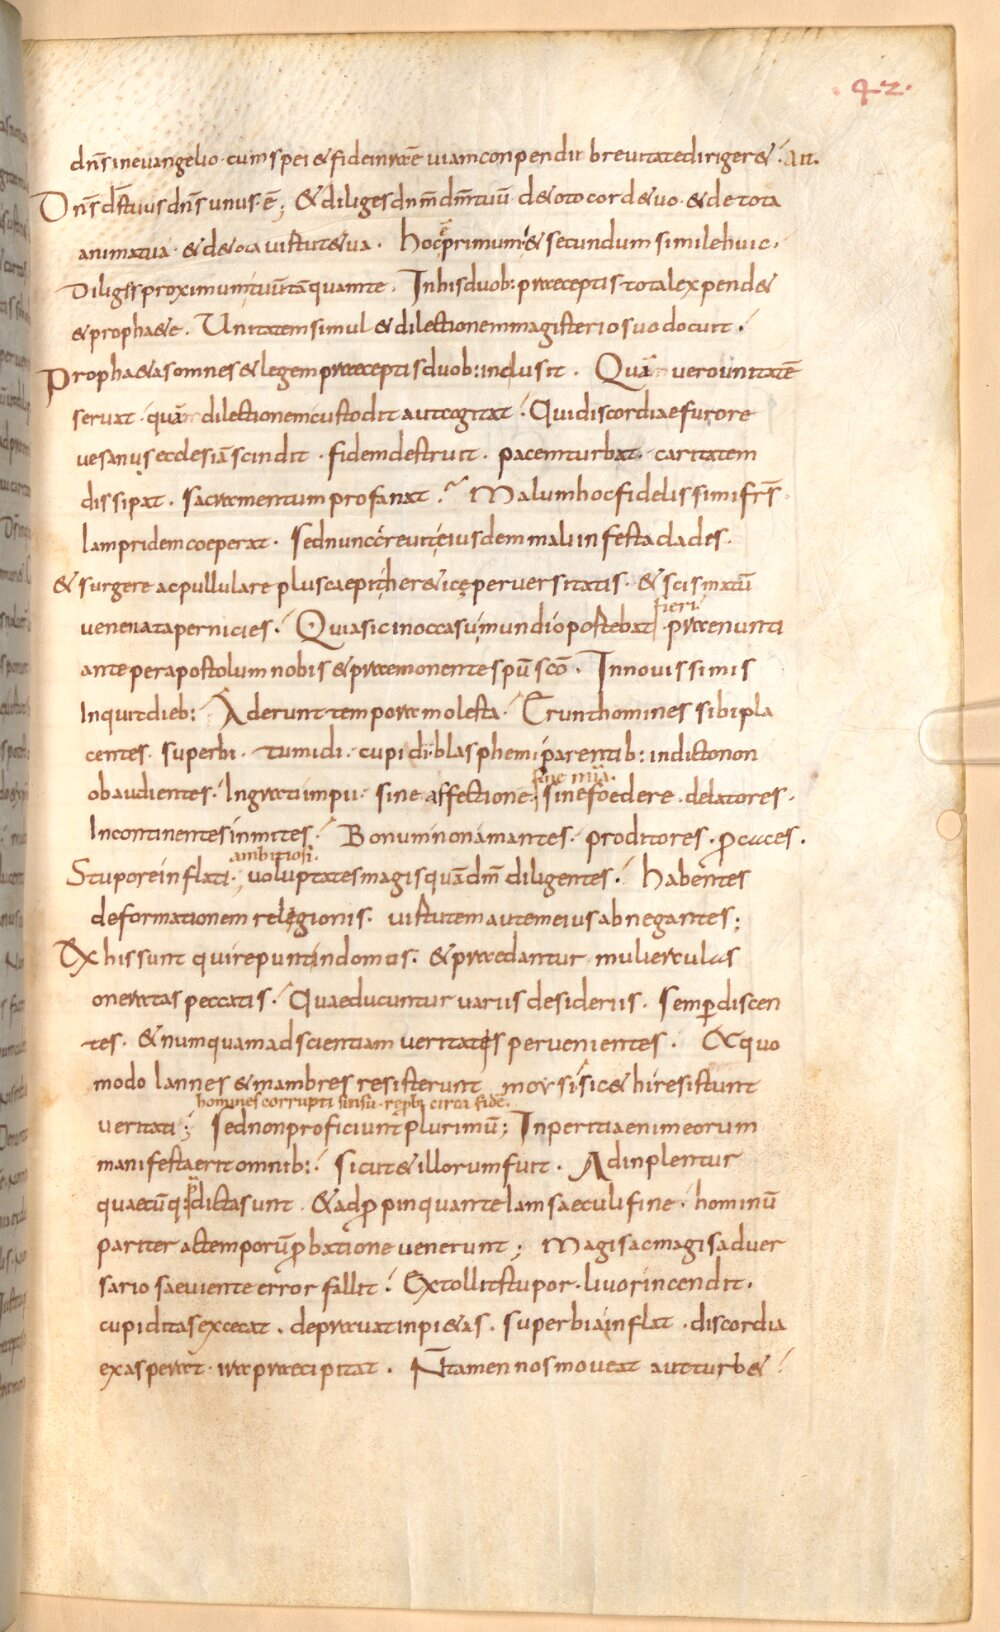 42.
dn̄s in evangelio · cum spei & fidei nrae viam conpendii brevitate dirigere& · Ait.
Dn̄s d̄s tuus dn̄s unus ē ; & diliges dn̄m dm̄ tuū · de toto corde tuo · & de tota
anima tua · & de tota virtute tua · hoc ē primum · & secundum simile huic ·
Diliges proximum tuū tāquam te · In his duob: praeceptis tota lex pend&
& prophetae · Unitatem simul & dilectionem magisterio suo docuit ·
Prophetas omnes & legem praeceptis duob: inclusit · Quā vero unitatē
servat · quā dilectionem custodit aut cogitat · Qui discordiae furore
vesanus ecclesiā scindit · fidem destruit · pacem turbat · caritatem
dissipat · sacramentum profanat · Malum hoc fidelissimi frs̄
Iam pridem coeperat · sed nunc crevit eiusdem mali infesta clades ·
& surgere ac pullulare plus caepit her&icę perversitatis · & scismatū
fieri ·
venenata pernicies · Quia sic in occasu mundi oportebat · praenunti
ante per apostolum nobis & praemonente spū scō · In novissimis
Inquit dieb: Aderunt tempora molesta · Erunt homines sibi pla
centes · superbi · tumidi · cupidi · blasphemi parentib: in dicto non
sine mīa ·
obaudientes · Ingrati impii · sine affectione · sine foedere · delatores ·
Incontinentes inmites · Bonum non amantes · proditores · p̱caces ·
ambitiosi ·
Stupore inflati · voluptates magis quā dm̄ diligentes · habentes
deformationem religionis · virtutem autem eius abnegantes ;
Ex his sunt qui repunt in domos · & praedantur mulierculas
oneratas peccatis · Quae ducuntur variis desideriis · semp̱ discen
tes · & numquam ad scientiam veritatis pervenientes · Et quo
modo Iannes & mambres resisterunt moysi sic & hi resistunt
homines corrupti sensu · reprobi circa fidē ·
veritati ; Sed non proficiunt plurimū ; Inperitia enim eorum
manifesta erit omnib: · sicut & illorum fuit · Adinplentur
quaecūq: p̄dicta sunt · & adp̱pinquante Iam saeculi fine · hominū
pariter ac temporū p̱batione venerunt ; Magis ac magis adver
sario saeviente error fallit · Extollit stupor · livor incendit ·
cupiditas excecat · depravat inpi&as · superbia inflat · discordia
exasperat · ira praecipitat · N̄ tamen nos moveat aut turb& ·